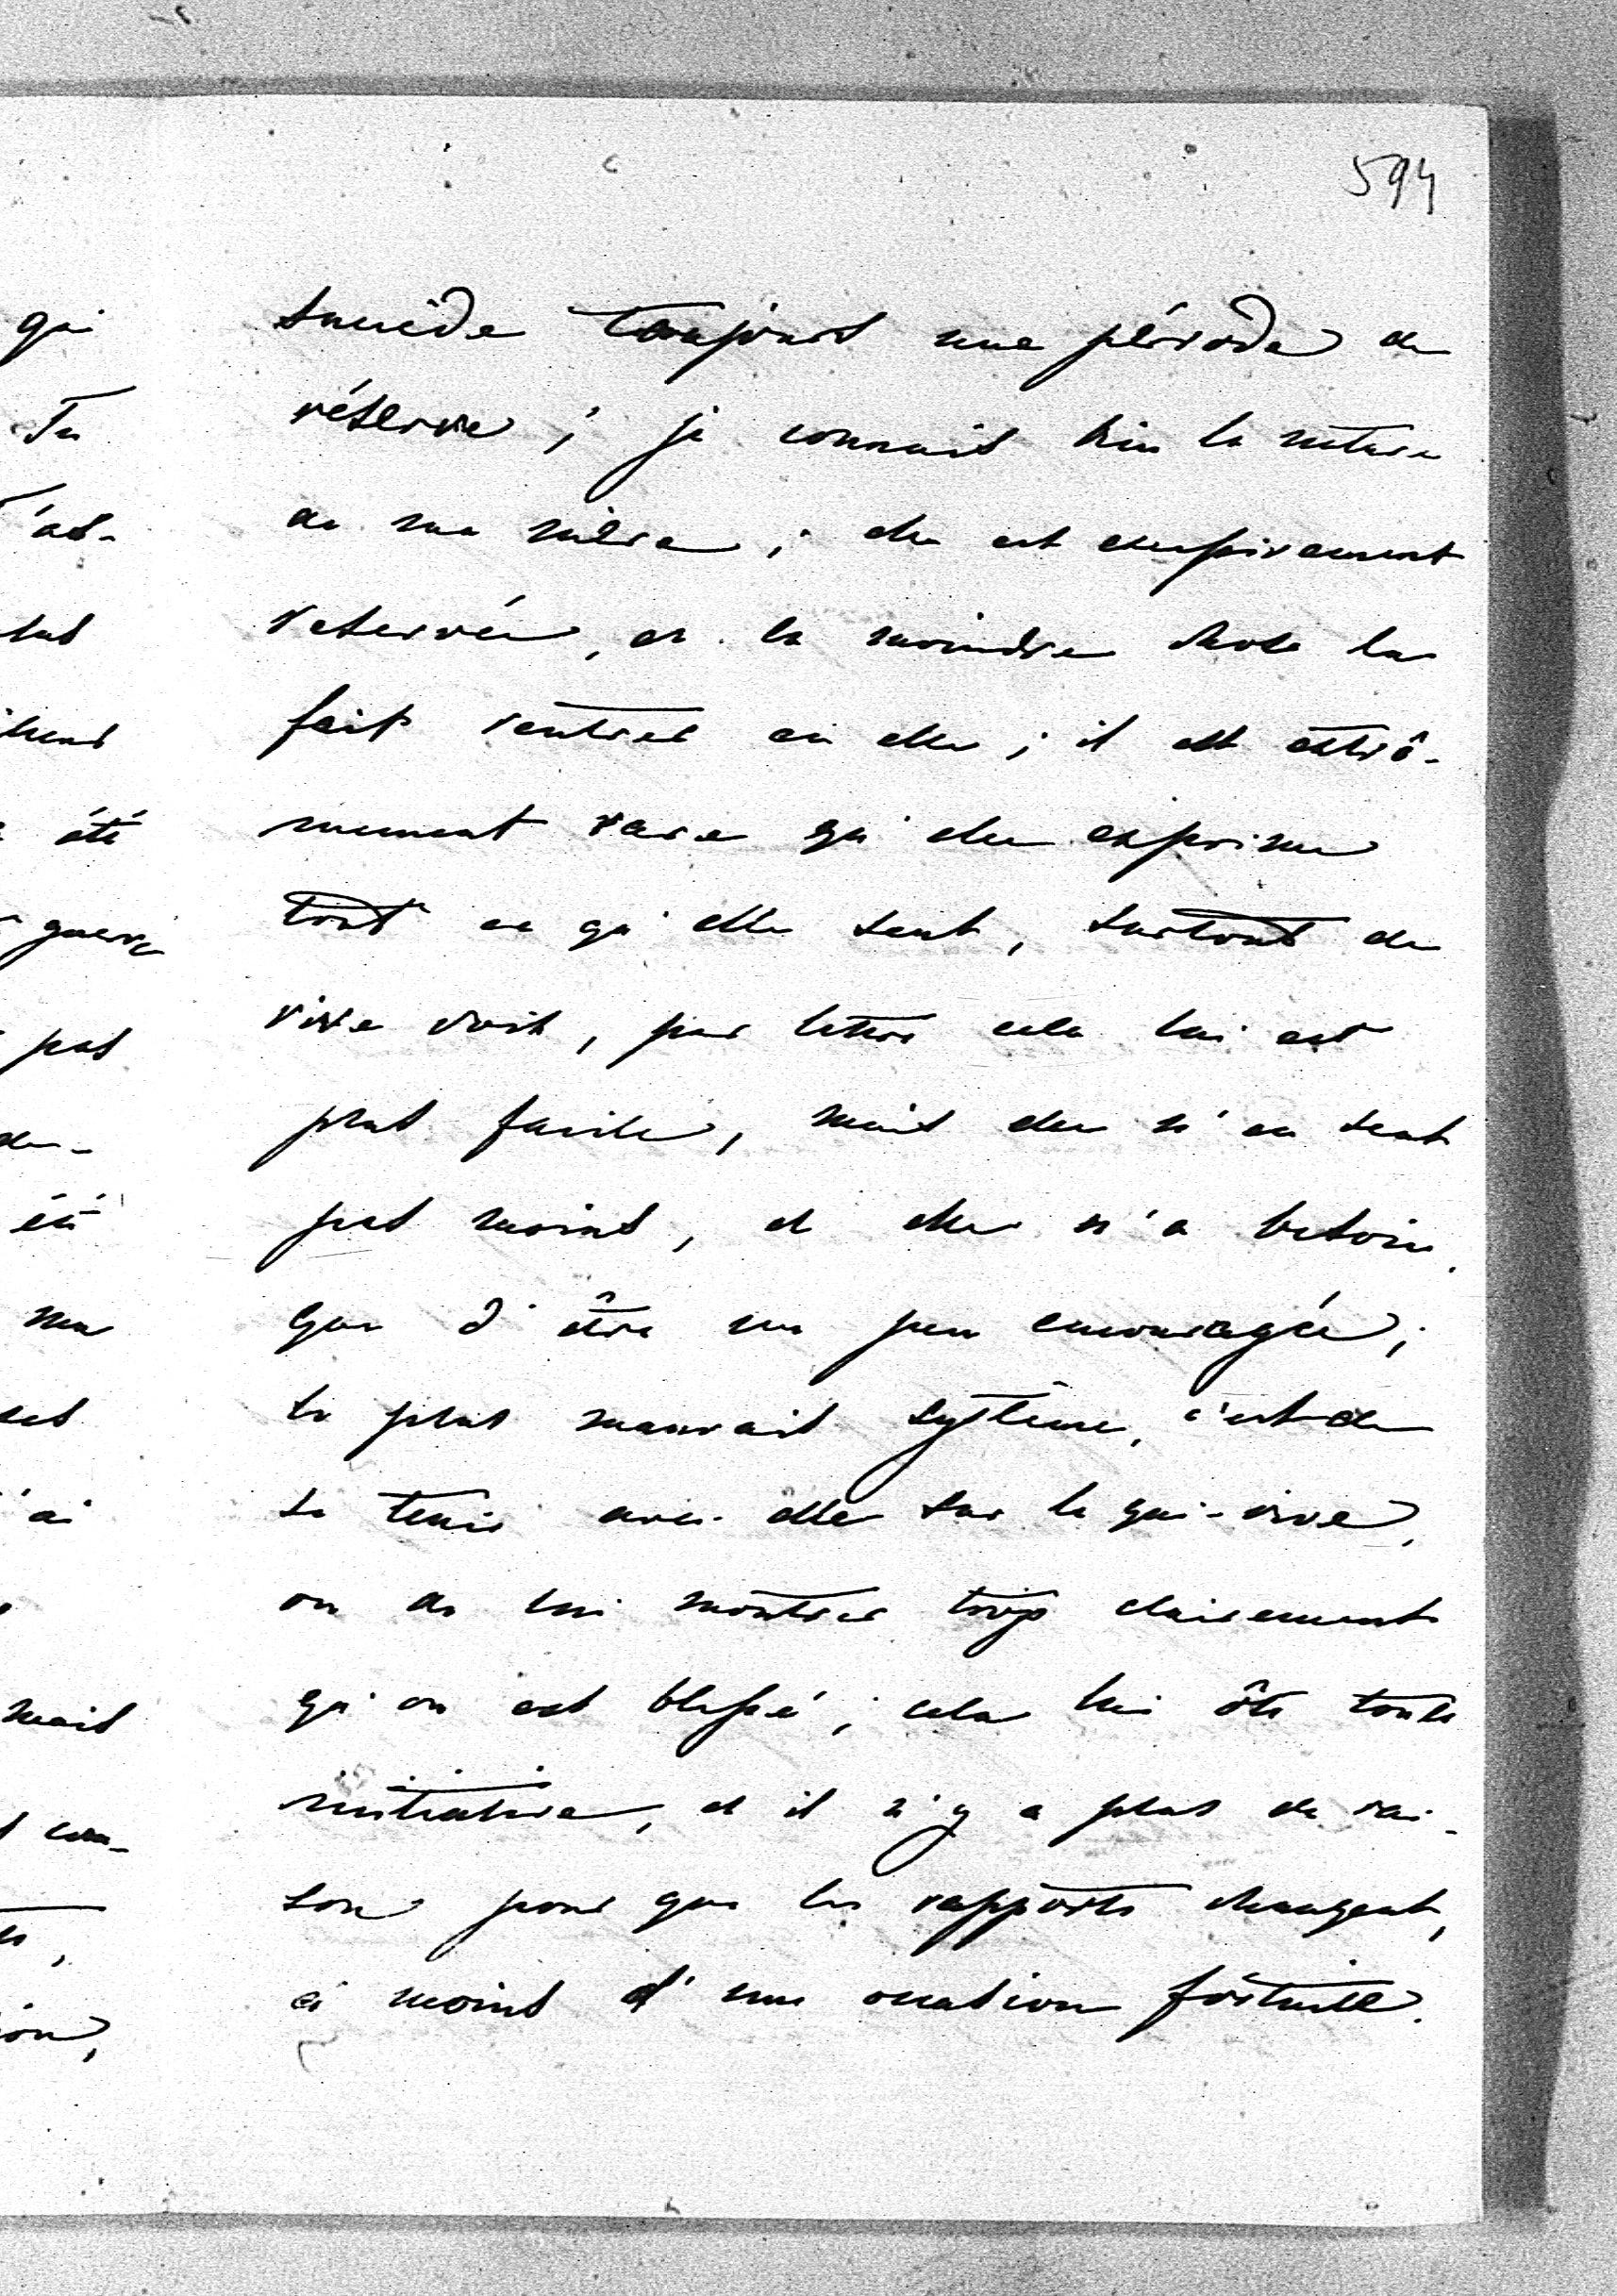 594
succède toujours une période de
réserve ; je connais bien la nature
de ma mère ; elle est excessivement
reservée, et la moindre chose la
fait rentrer en elle ; il est extrê-
mement rare qu'elle exprime
tout ce qu'elle sent, surtout de
vive voix, par lettre cela lui est
plus facile, mais elle n'en sent
pas moins, et elle n'a besoin
que d'être un peu encouragée ;
le plus mauvais système, c'est de
se tenir avec elle sur le qui-vive,
ou de lui montrer trop clairement
qu'on est blessé ; cela lui ôte toute
initiative, et il n'y a plus de rai-
son pour que les rapports changent,
à moins d'une occasion fortuite.
qui
Tu
été
guerre
pas
ma
mais